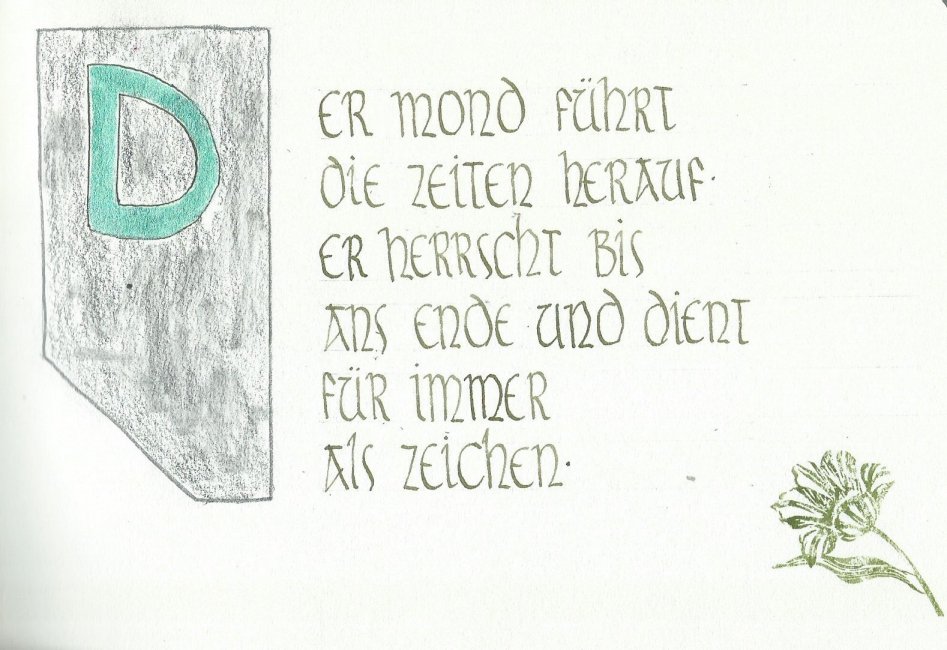 DER MOND FÜHRT
DIE ZEITEN HERAUF.
ER HERRSCHT BIS
ANS ENDE UND DIENT
FÜR IMMER
ALS ZEICHEN.